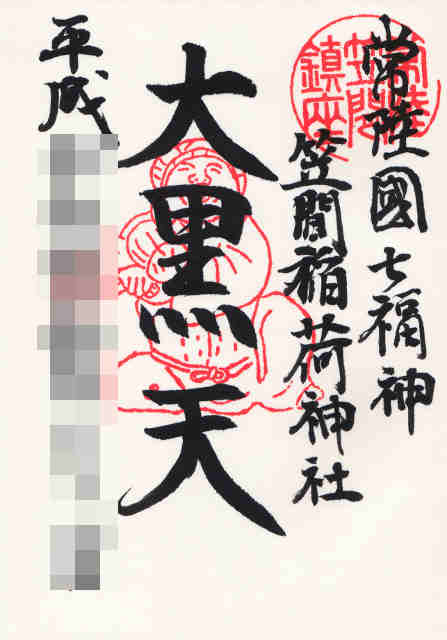 常陸國七福神
笠間稲荷神社
大黒天
平成
常陸
笠間
鎮座